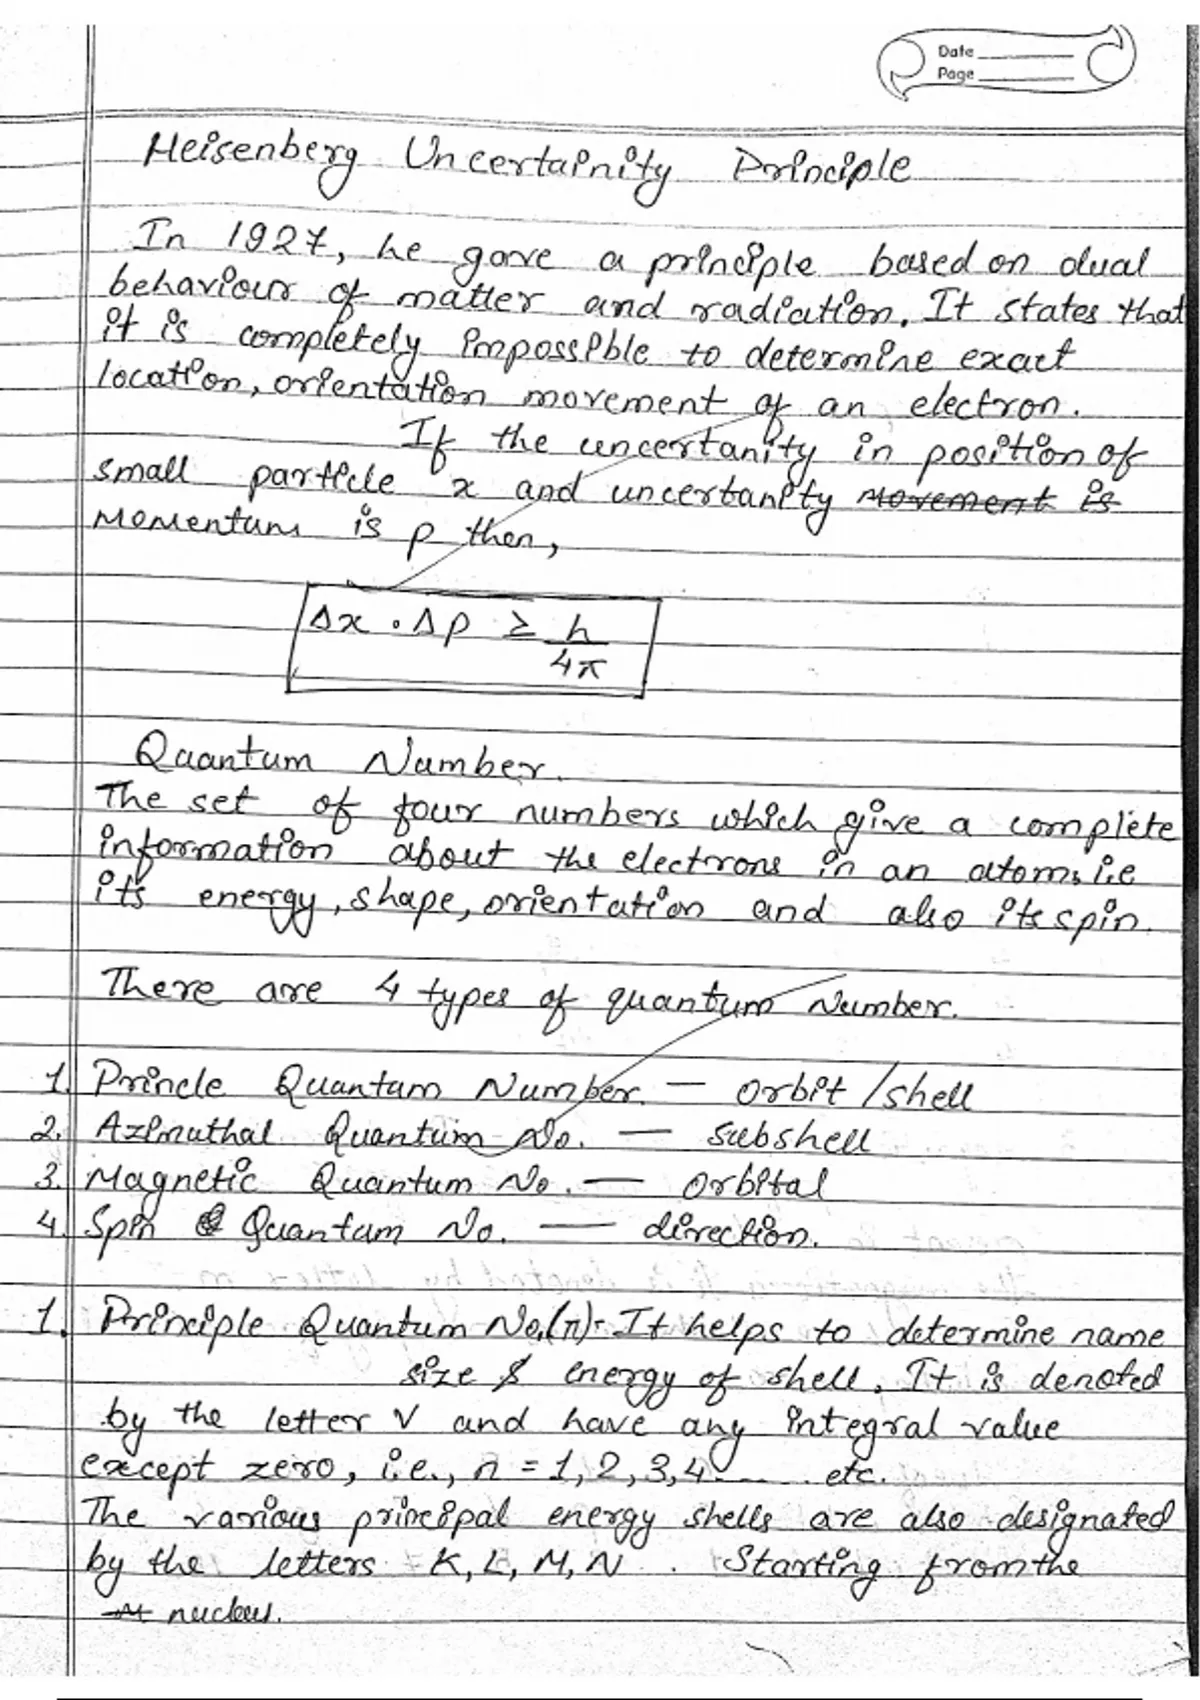 Date
Page
Heisenberg Uncertainity Principle
In 1927, he gave a principle based on dual
behaviour of matter and radiation. It states that
it is completely impossible to determine exact
location, orientation movement of an electron.
If the uncertanity in position of
small particle x and uncertanity movement is
momentum is p then,
Δx . Δp ≥ h/4π
Quantum Number.
The set of four numbers which give a complete
information about the electrons in an atoms i.e
its energy, shape, orientation and also its spin.
There are 4 types of quantum Number.
1. Princle Quantum Number. — orbit /shell
2. Azimuthal Quantum No. — subshell
3. Magnetic Quantum No. — orbital
4. Spin Quantum No. — direction.
1. Principle Quantum No.(n)- It helps to determine name
size & energy of shell. It is denoted
by the letter v and have any integral value
except zero, i.e., n = 1, 2, 3, 4....... etc.
The various principal energy shells are also designated
by the letters K, L, M, N . . Starting from the
nucleus.